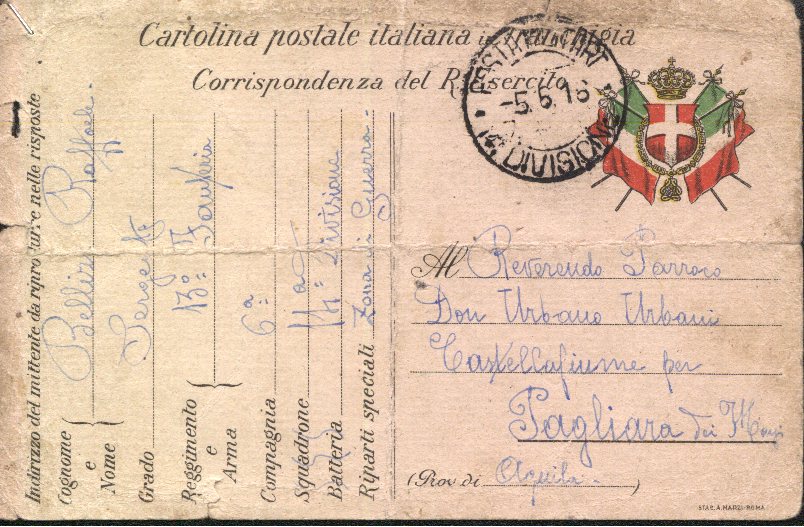 Cartolina postale italiana in franchigia
Corrispondenza del R. Esercito
POSTA MILITARE
-5.6.16
14ª DIVISIONE
Indirizzo del mittente da riprodurre nelle risposte
Cognome e Nome Bellini Raffaele
Grado Sergente
Reggimento e Arma 13º Fanteria
Compagnia 6ª
Squadrone
Batteria 14ª Divisione
Riparti speciali Zona di Guerra
Al Reverendo Parroco
Don Urbano Urbani
Castellafiume per
Pagliara dei Marsi
(Prov di Aquila)
STAB. A. MARZI-ROMA